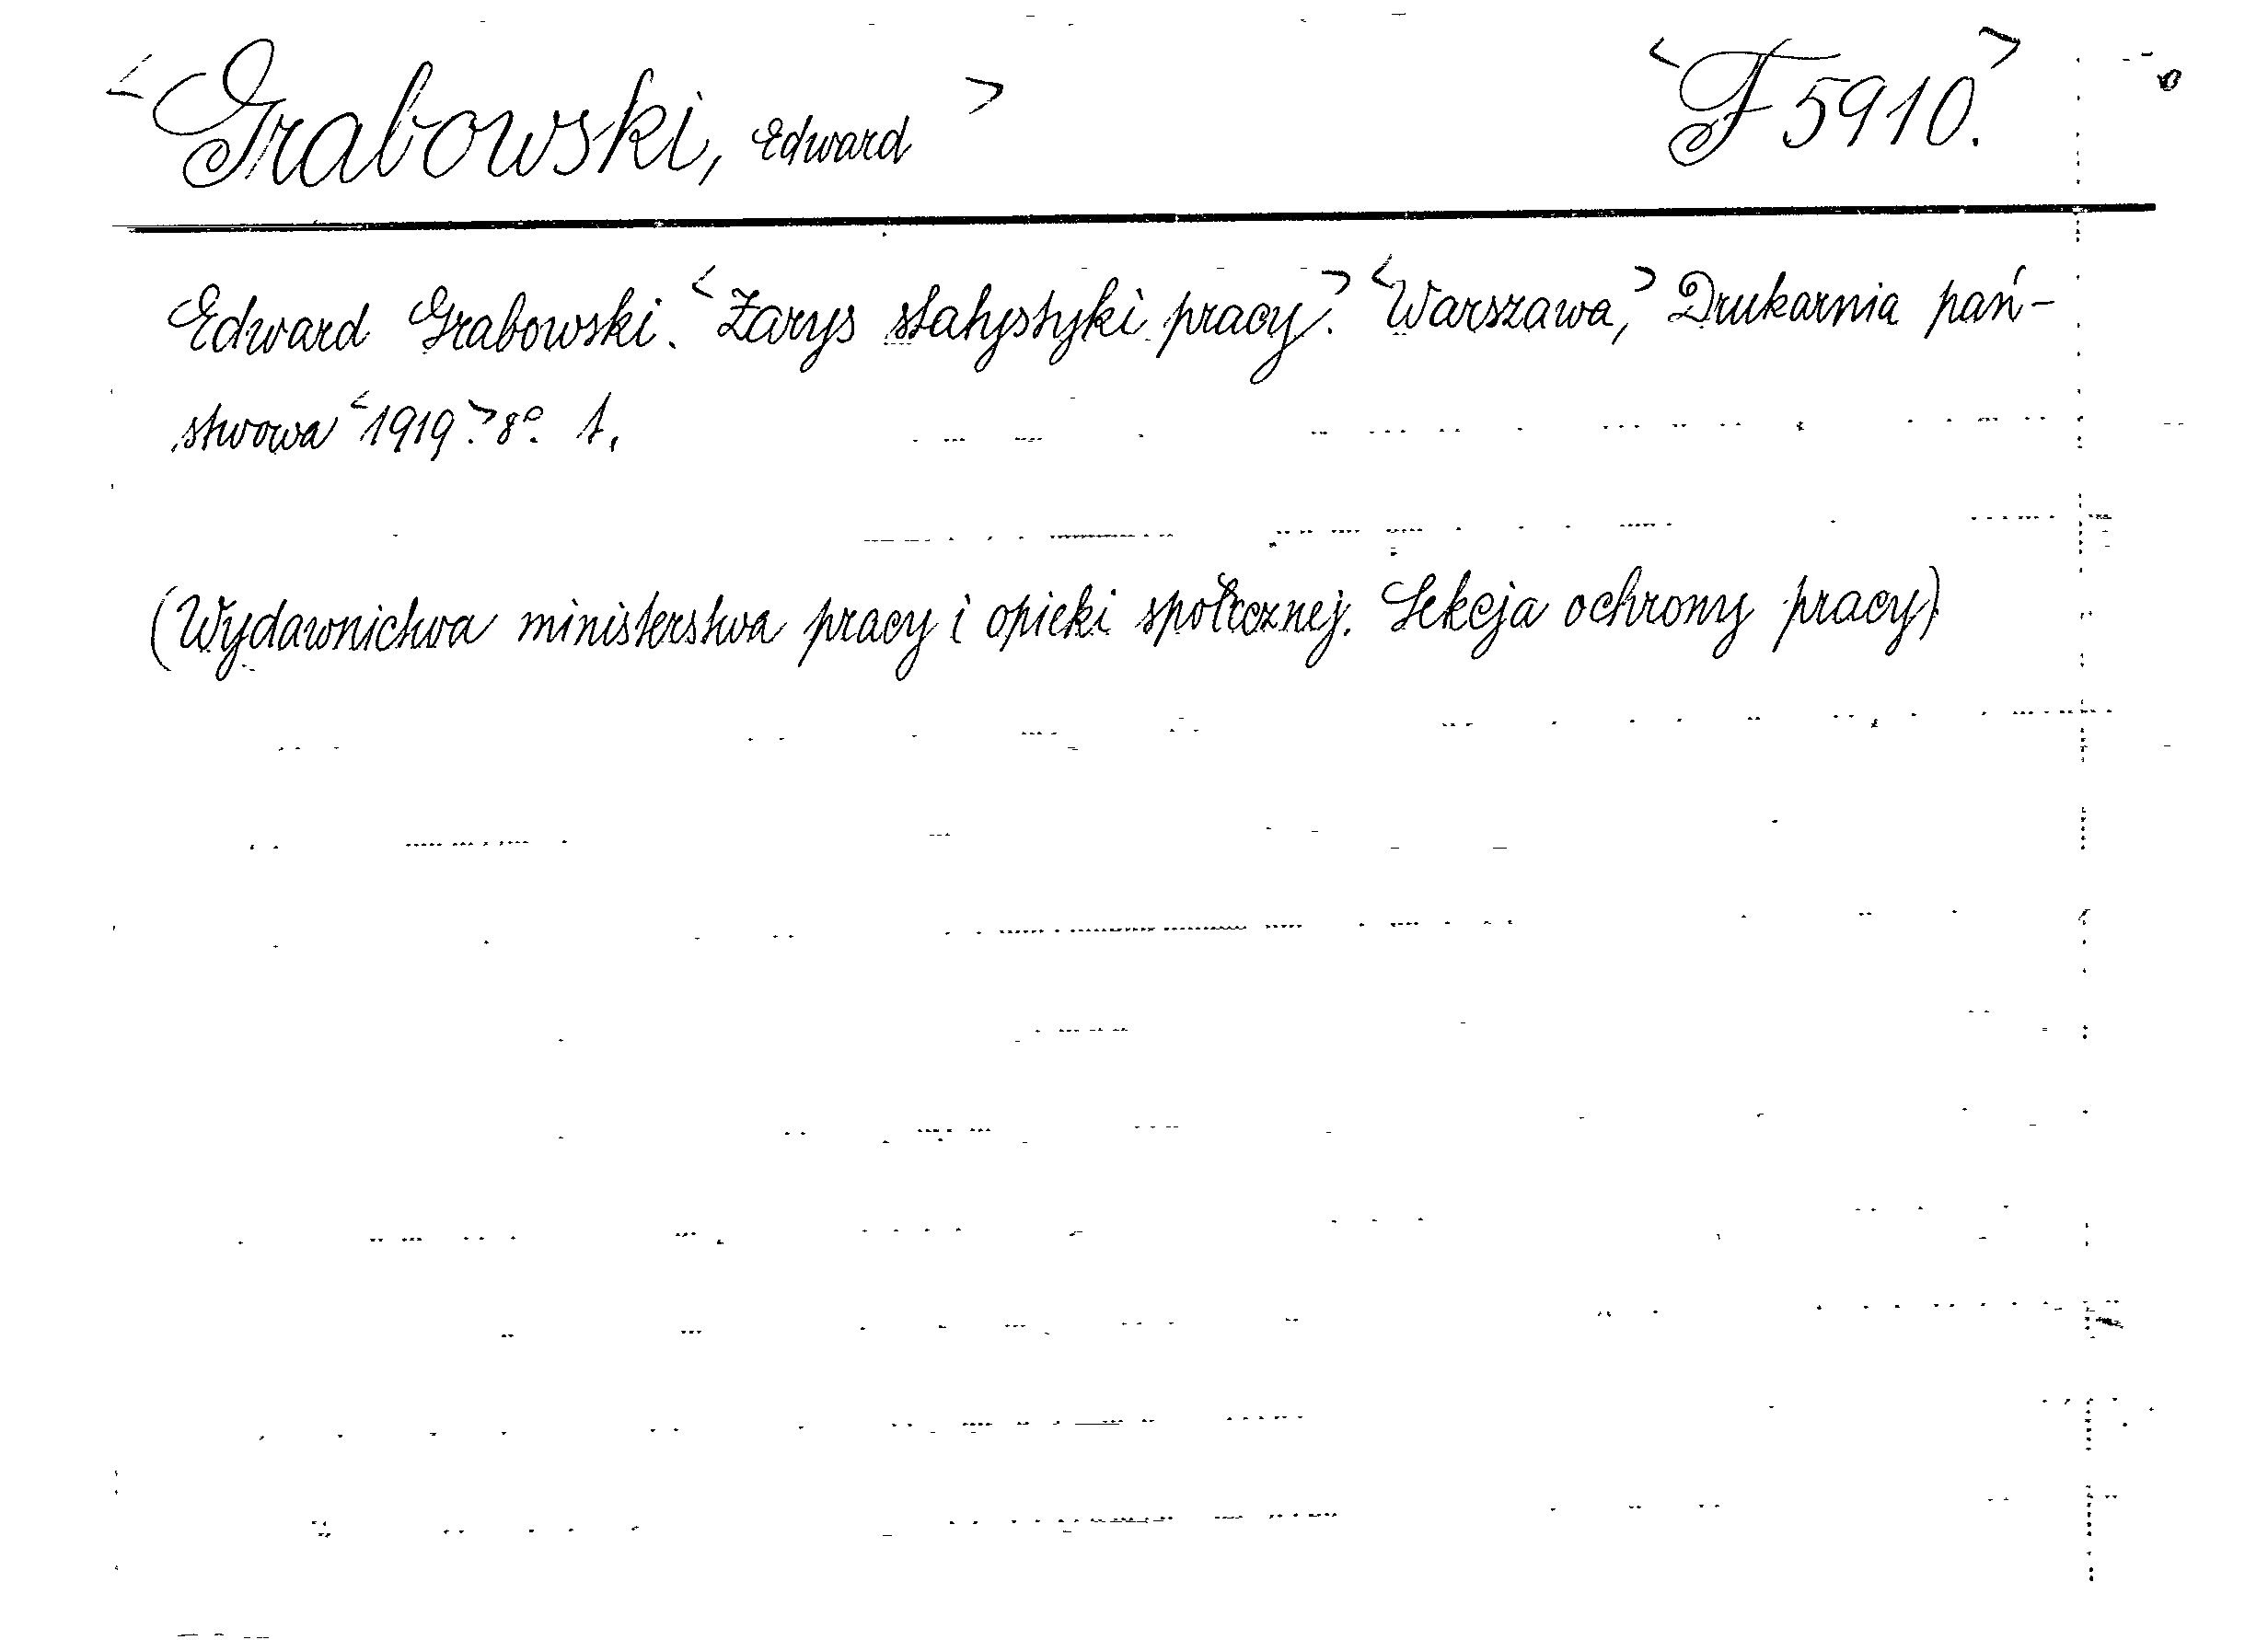 <Grabowski, Edward> <F 5910.>
Edward Grabowski. <Zarys statystyki pracy.> <Warszawa,> Drukarnia pań-
stwowa <1919.> 8°. 1.
(Wydawnictwa ministerstwa pracy i opieki społecznej. Sekcja ochrony pracy)